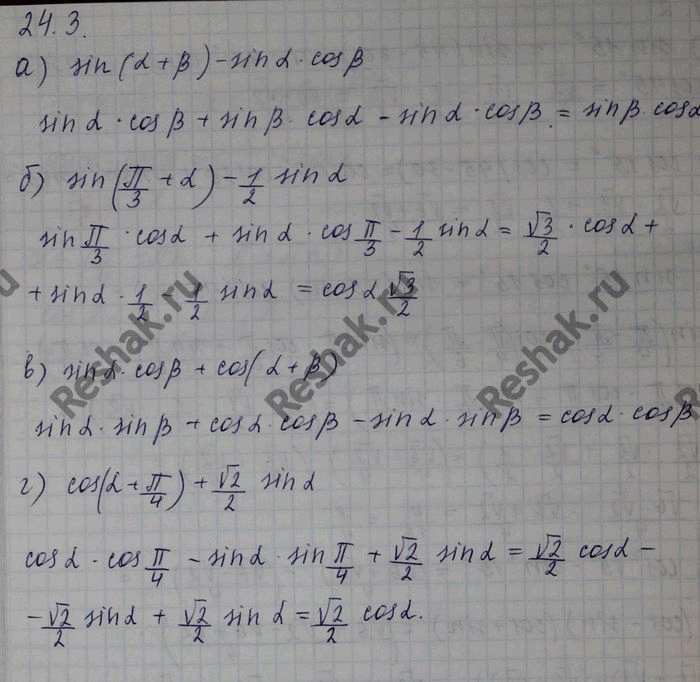 24.3.
а) sin(α+β)-sinα·cosβ
sinα·cosβ+sinβ·cosα-sinα·cosβ=sinβ·cosα
б) sin(π/3+α)-1/2 sinα
sin π/3·cosα+sinα·cos π/3-1/2 sinα=√3/2·cosα+
+sinα·1/2-1/2 sinα=cosα √3/2
в) sinα·cosβ+cos(α+β)
sinα·sinβ+cosα·cosβ-sinα·sinβ=cosα·cosβ
г) cos(α+π/4)+√2/2 sinα
cosα·cos π/4-sinα·sin π/4+√2/2 sinα=√2/2 cosα-
-√2/2 sinα+√2/2 sinα=√2/2 cosα.
Reshak.ru
Reshak.ru
Reshak.ru